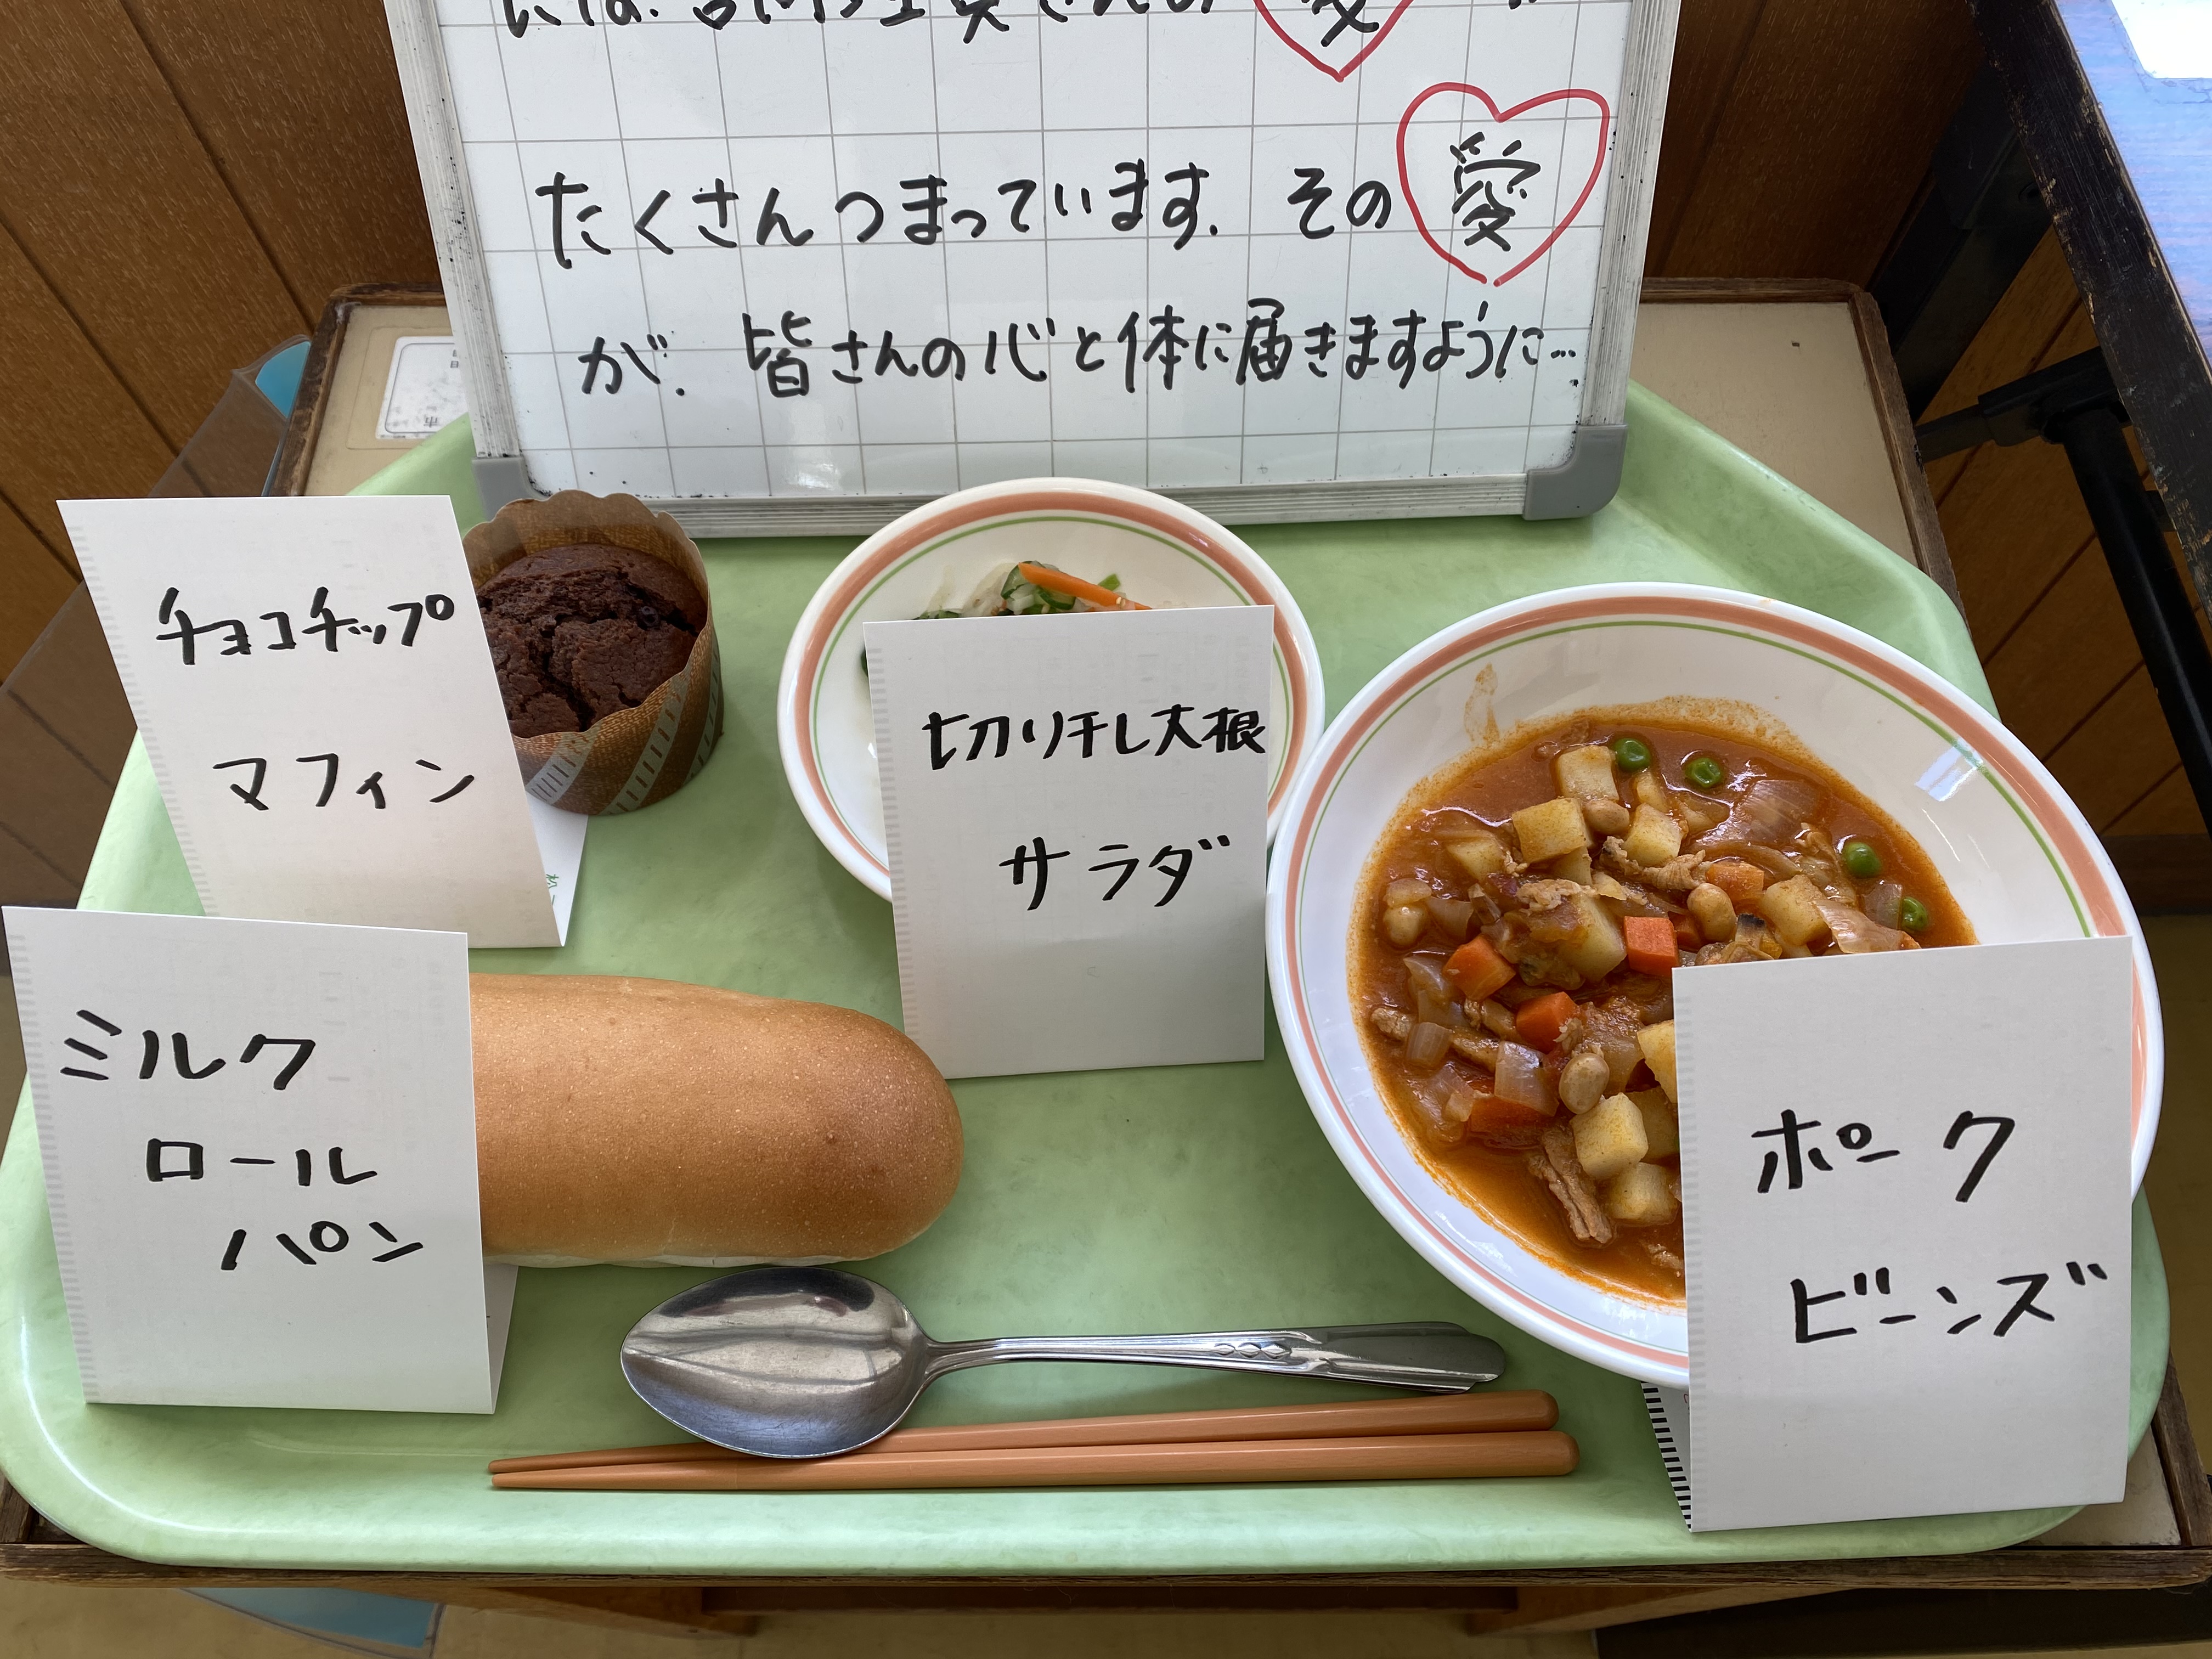 愛
たくさんつまっています. その愛
が. 皆さんの心と体に届きますように…
チョコチップ
マフィン
切り干し大根
サラダ
ミルク
ロール
パン
ポーク
ビーンズ